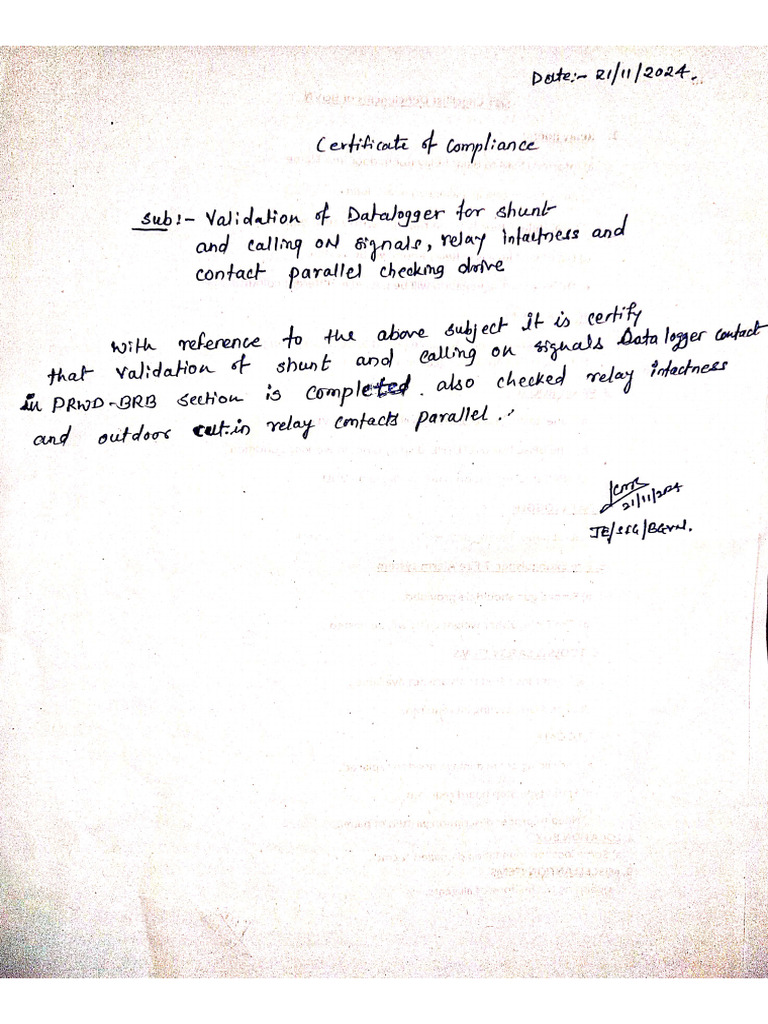 Date:- 21/11/2024.
Certificate of Compliance
Sub:- Validation of Datalogger for shunt
and calling on signals, relay intactness and
contact parallel checking drive
With reference to the above subject it is certify
that validation of shunt and calling on signals Datalogger contact
in PRWD-BRB section is completed. also checked relay intactness
and outdoor cut-in relay contacts parallel.
21/11/2024
JE/SSG/BGVN.